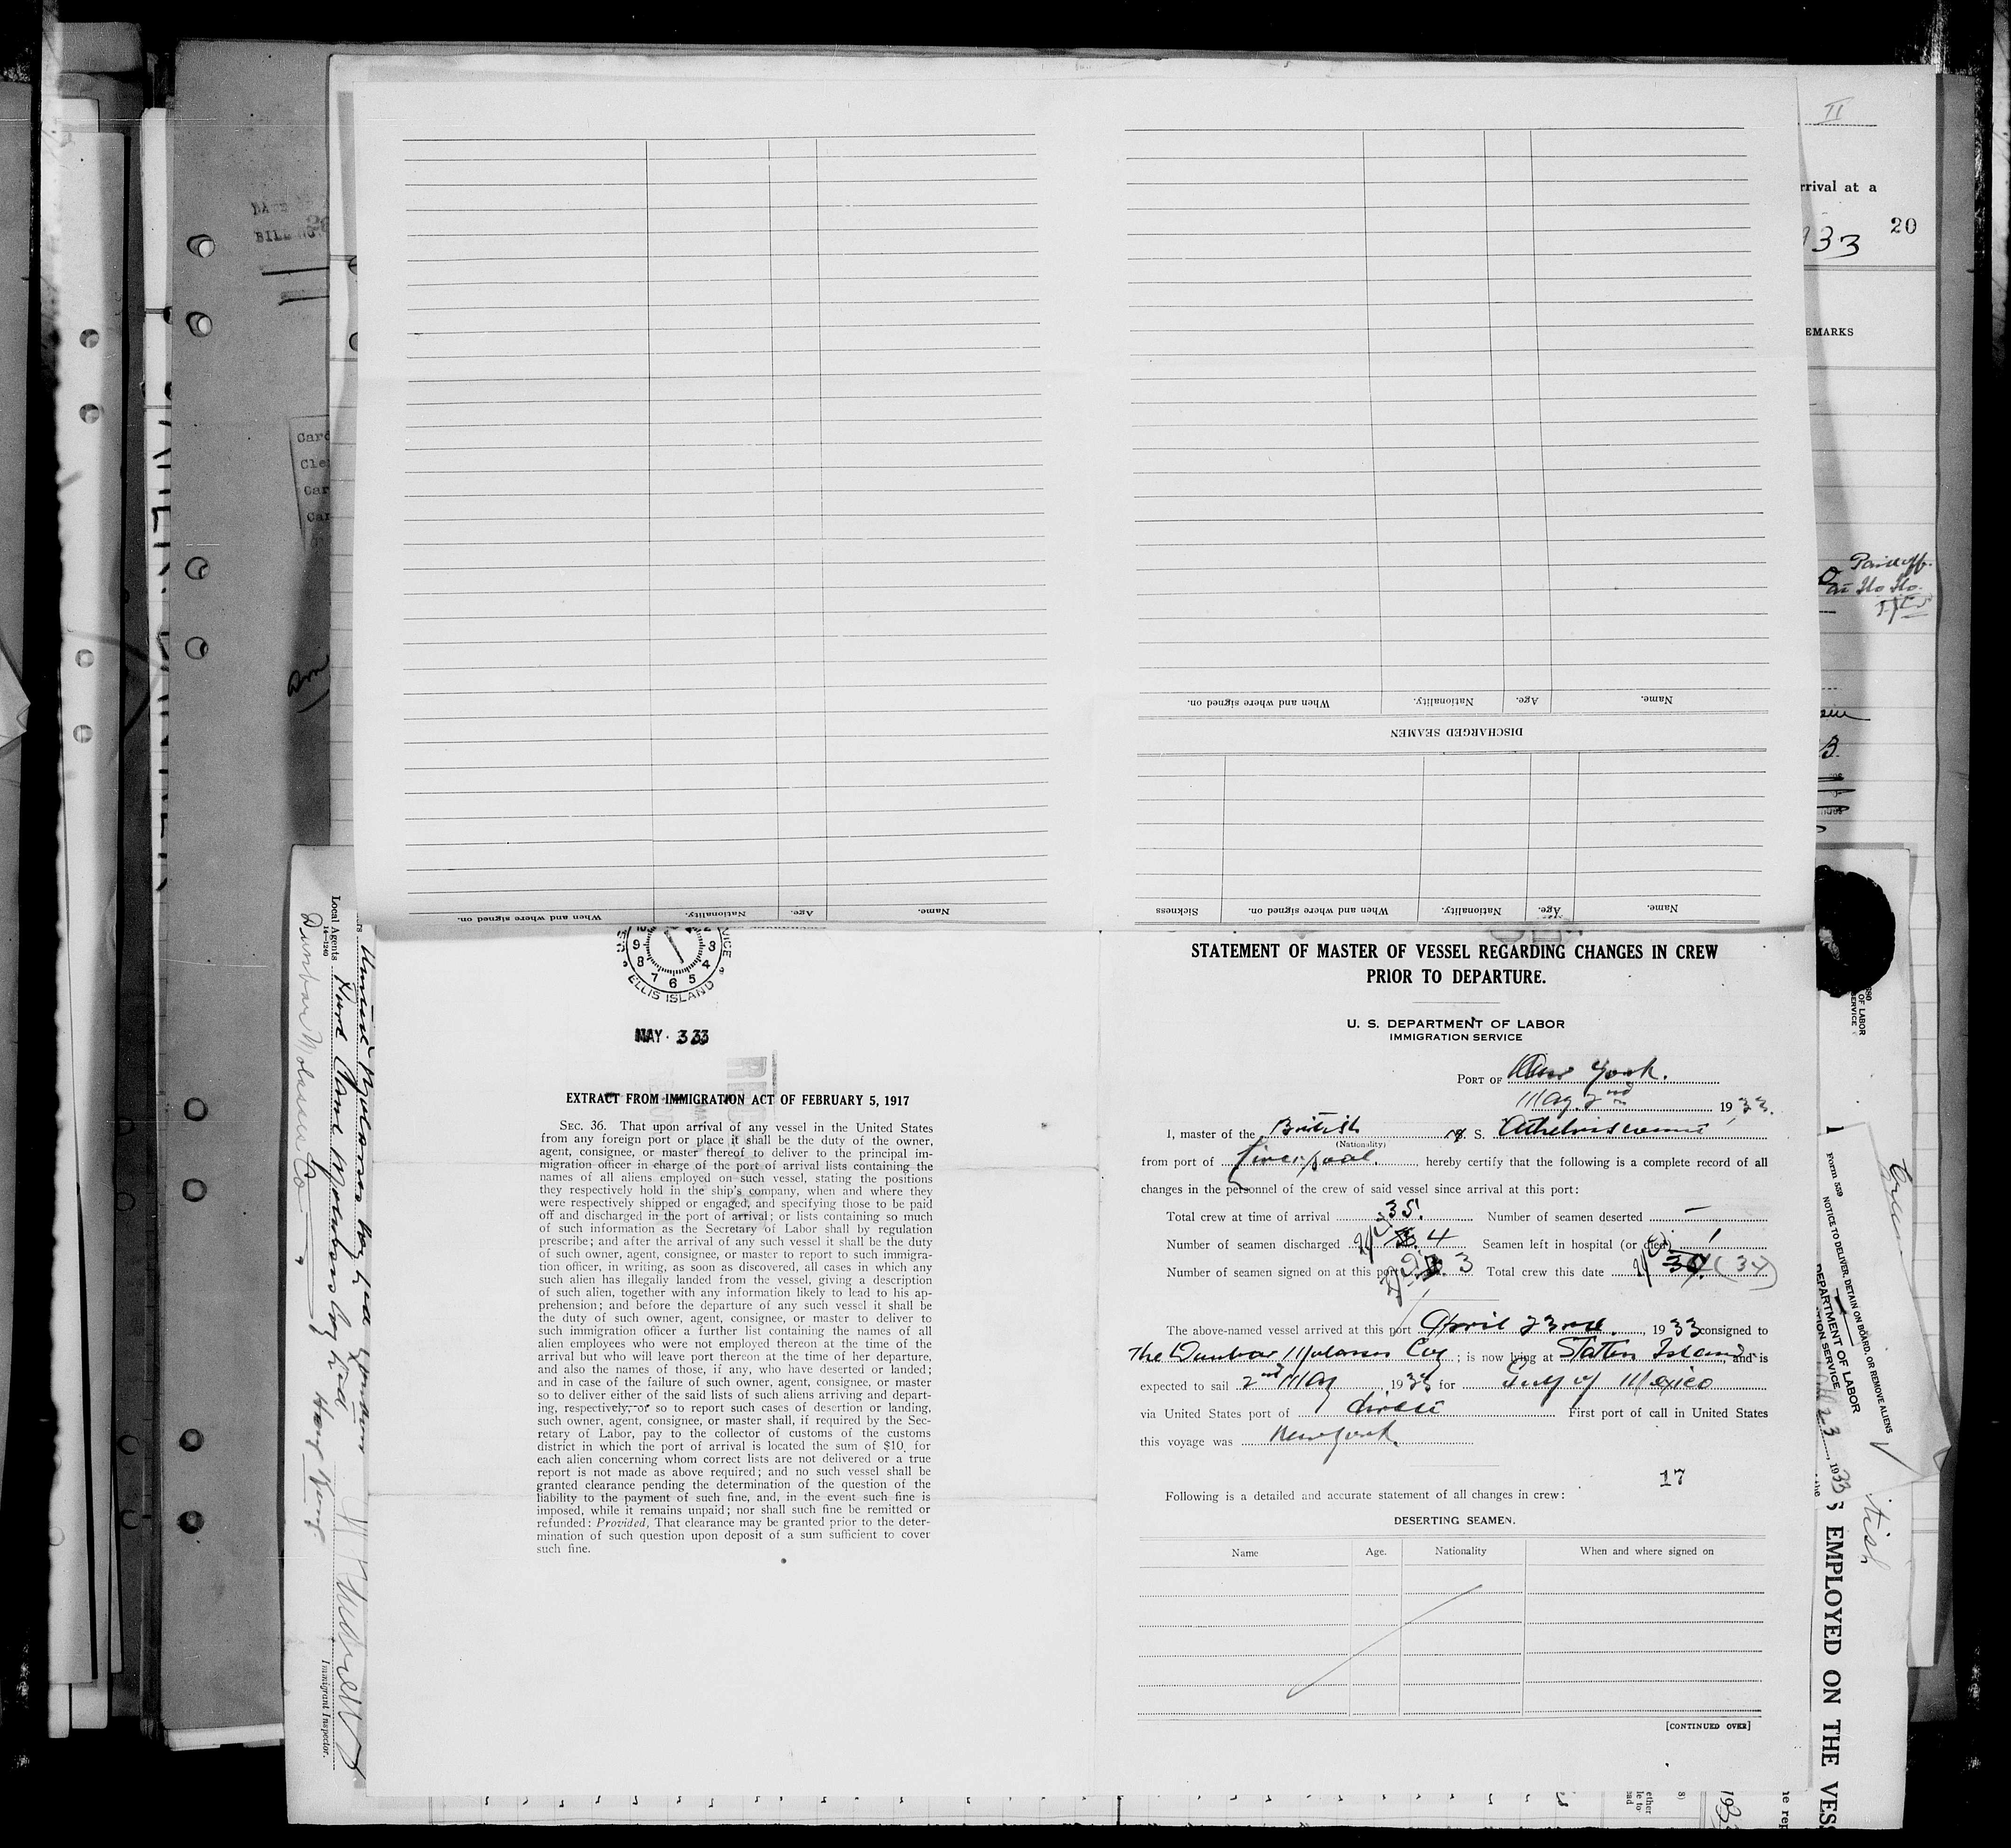 II
rrival at a
20
933
EMARKS
BILL
Card
Cle
Car
Car
When and where signed on. Nationality. Age. Name.
DISCHARGED SEAMEN
Sickness When and where signed on. Nationality. Age. Name.
When and where signed on. Nationality. Age. Name.
9 8 7 6 5 4 3
ELLIS ISLAND
MAY 3 33
EXTRACT FROM IMMIGRATION ACT OF FEBRUARY 5, 1917
SEC. 36. That upon arrival of any vessel in the United States
from any foreign port or place it shall be the duty of the owner,
agent, consignee, or master thereof to deliver to the principal im-
migration officer in charge of the port of arrival lists containing the
names of all aliens employed on such vessel, stating the positions
they respectively hold in the ship's company, when and where they
were respectively shipped or engaged, and specifying those to be paid
off and discharged in the port of arrival; or lists containing so much
of such information as the Secretary of Labor shall by regulation
prescribe; and after the arrival of any such vessel it shall be the duty
of such owner, agent, consignee, or master to report to such immigra-
tion officer, in writing, as soon as discovered, all cases in which any
such alien has illegally landed from the vessel, giving a description
of such alien, together with any information likely to lead to his ap-
prehension; and before the departure of any such vessel it shall be
the duty of such owner, agent, consignee, or master to deliver to
such immigration officer a further list containing the names of all
alien employees who were not employed thereon at the time of the
arrival but who will leave port thereon at the time of her departure,
and also the names of those, if any, who have deserted or landed;
and in case of the failure of such owner, agent, consignee, or master
so to deliver either of the said lists of such aliens arriving and depart-
ing, respectively, or so to report such cases of desertion or landing,
such owner, agent, consignee, or master shall, if required by the Sec-
retary of Labor, pay to the collector of customs of the customs
district in which the port of arrival is located the sum of $10 for
each alien concerning whom correct lists are not delivered or a true
report is not made as above required; and no such vessel shall be
granted clearance pending the determination of the question of the
liability to the payment of such fine, and, in the event such fine is
imposed, while it remains unpaid; nor shall such fine be remitted or
refunded: Provided, That clearance may be granted prior to the deter-
mination of such question upon deposit of a sum sufficient to cover
such fine.
STATEMENT OF MASTER OF VESSEL REGARDING CHANGES IN CREW
PRIOR TO DEPARTURE.
U. S. DEPARTMENT OF LABOR
IMMIGRATION SERVICE
PORT OF New York.
May 2nd 1933.
I, master of the British S. S.
(Nationality)
from port of Liverpool, hereby certify that the following is a complete record of all
changes in the personnel of the crew of said vessel since arrival at this port:
Total crew at time of arrival 35. Number of seamen deserted —
Number of seamen discharged 4 Seamen left in hospital (or died) 1
Number of seamen signed on at this port 3 Total crew this date (34)
The above-named vessel arrived at this port April 23rd, 1933 consigned to
The Dunbar Molasses Coy; is now lying at Staten Island, and is
expected to sail 2nd May 1933 for Gulf of Mexico
via United States port of direct First port of call in United States
this voyage was New York.
17
Following is a detailed and accurate statement of all changes in crew:
DESERTING SEAMEN.
Name Age. Nationality When and where signed on
[CONTINUED OVER]
Local Agents
14—1240
Dunbar Molasses Co
Immigrant Inspector.
OF LABOR
SERVICE
Form 539
NOTICE TO DELIVER, DETAIN ON BOARD, OR REMOVE ALIENS
DEPARTMENT OF LABOR
23, 1933
S EMPLOYED ON THE VES